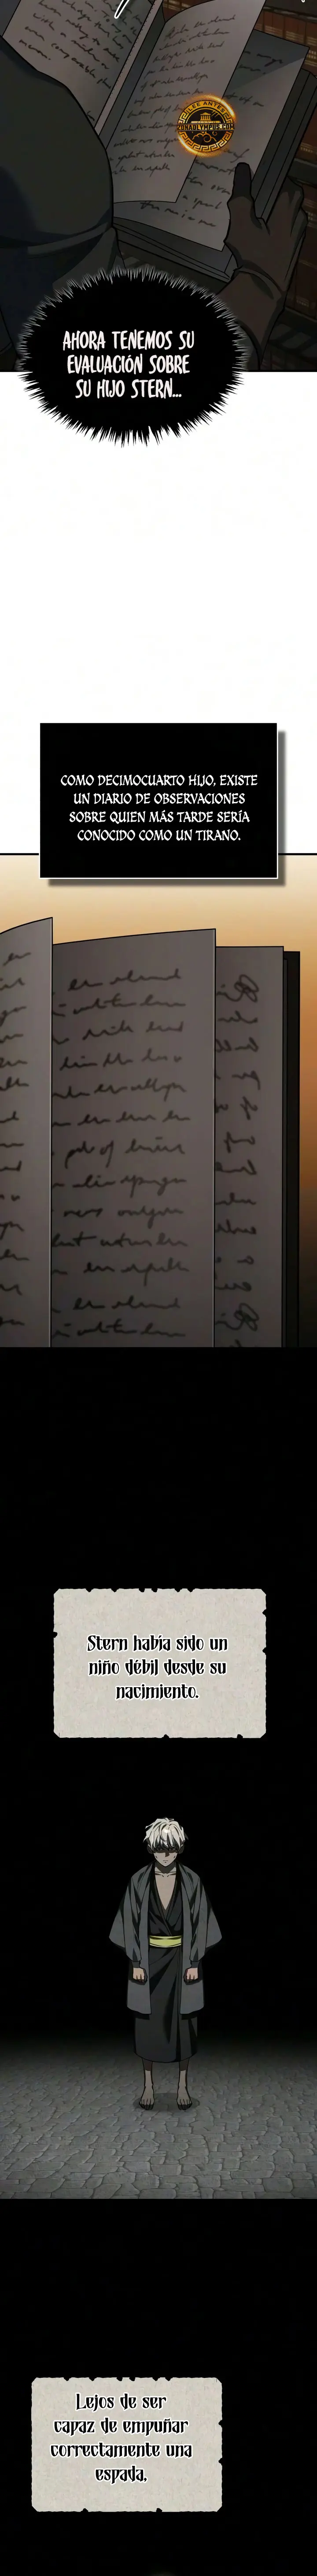 LEE ANTES
ZONAOLYMPUS.COM
AHORA TENEMOS SU
EVALUACIÓN SOBRE
SU HIJO STERN...
COMO DECIMOCUARTO HIJO, EXISTE
UN DIARIO DE OBSERVACIONES
SOBRE QUIEN MÁS TARDE SERÍA
CONOCIDO COMO UN TIRANO.
Stern había sido un
niño débil desde su
nacimiento.
Lejos de ser
capaz de empuñar
correctamente una
espada,